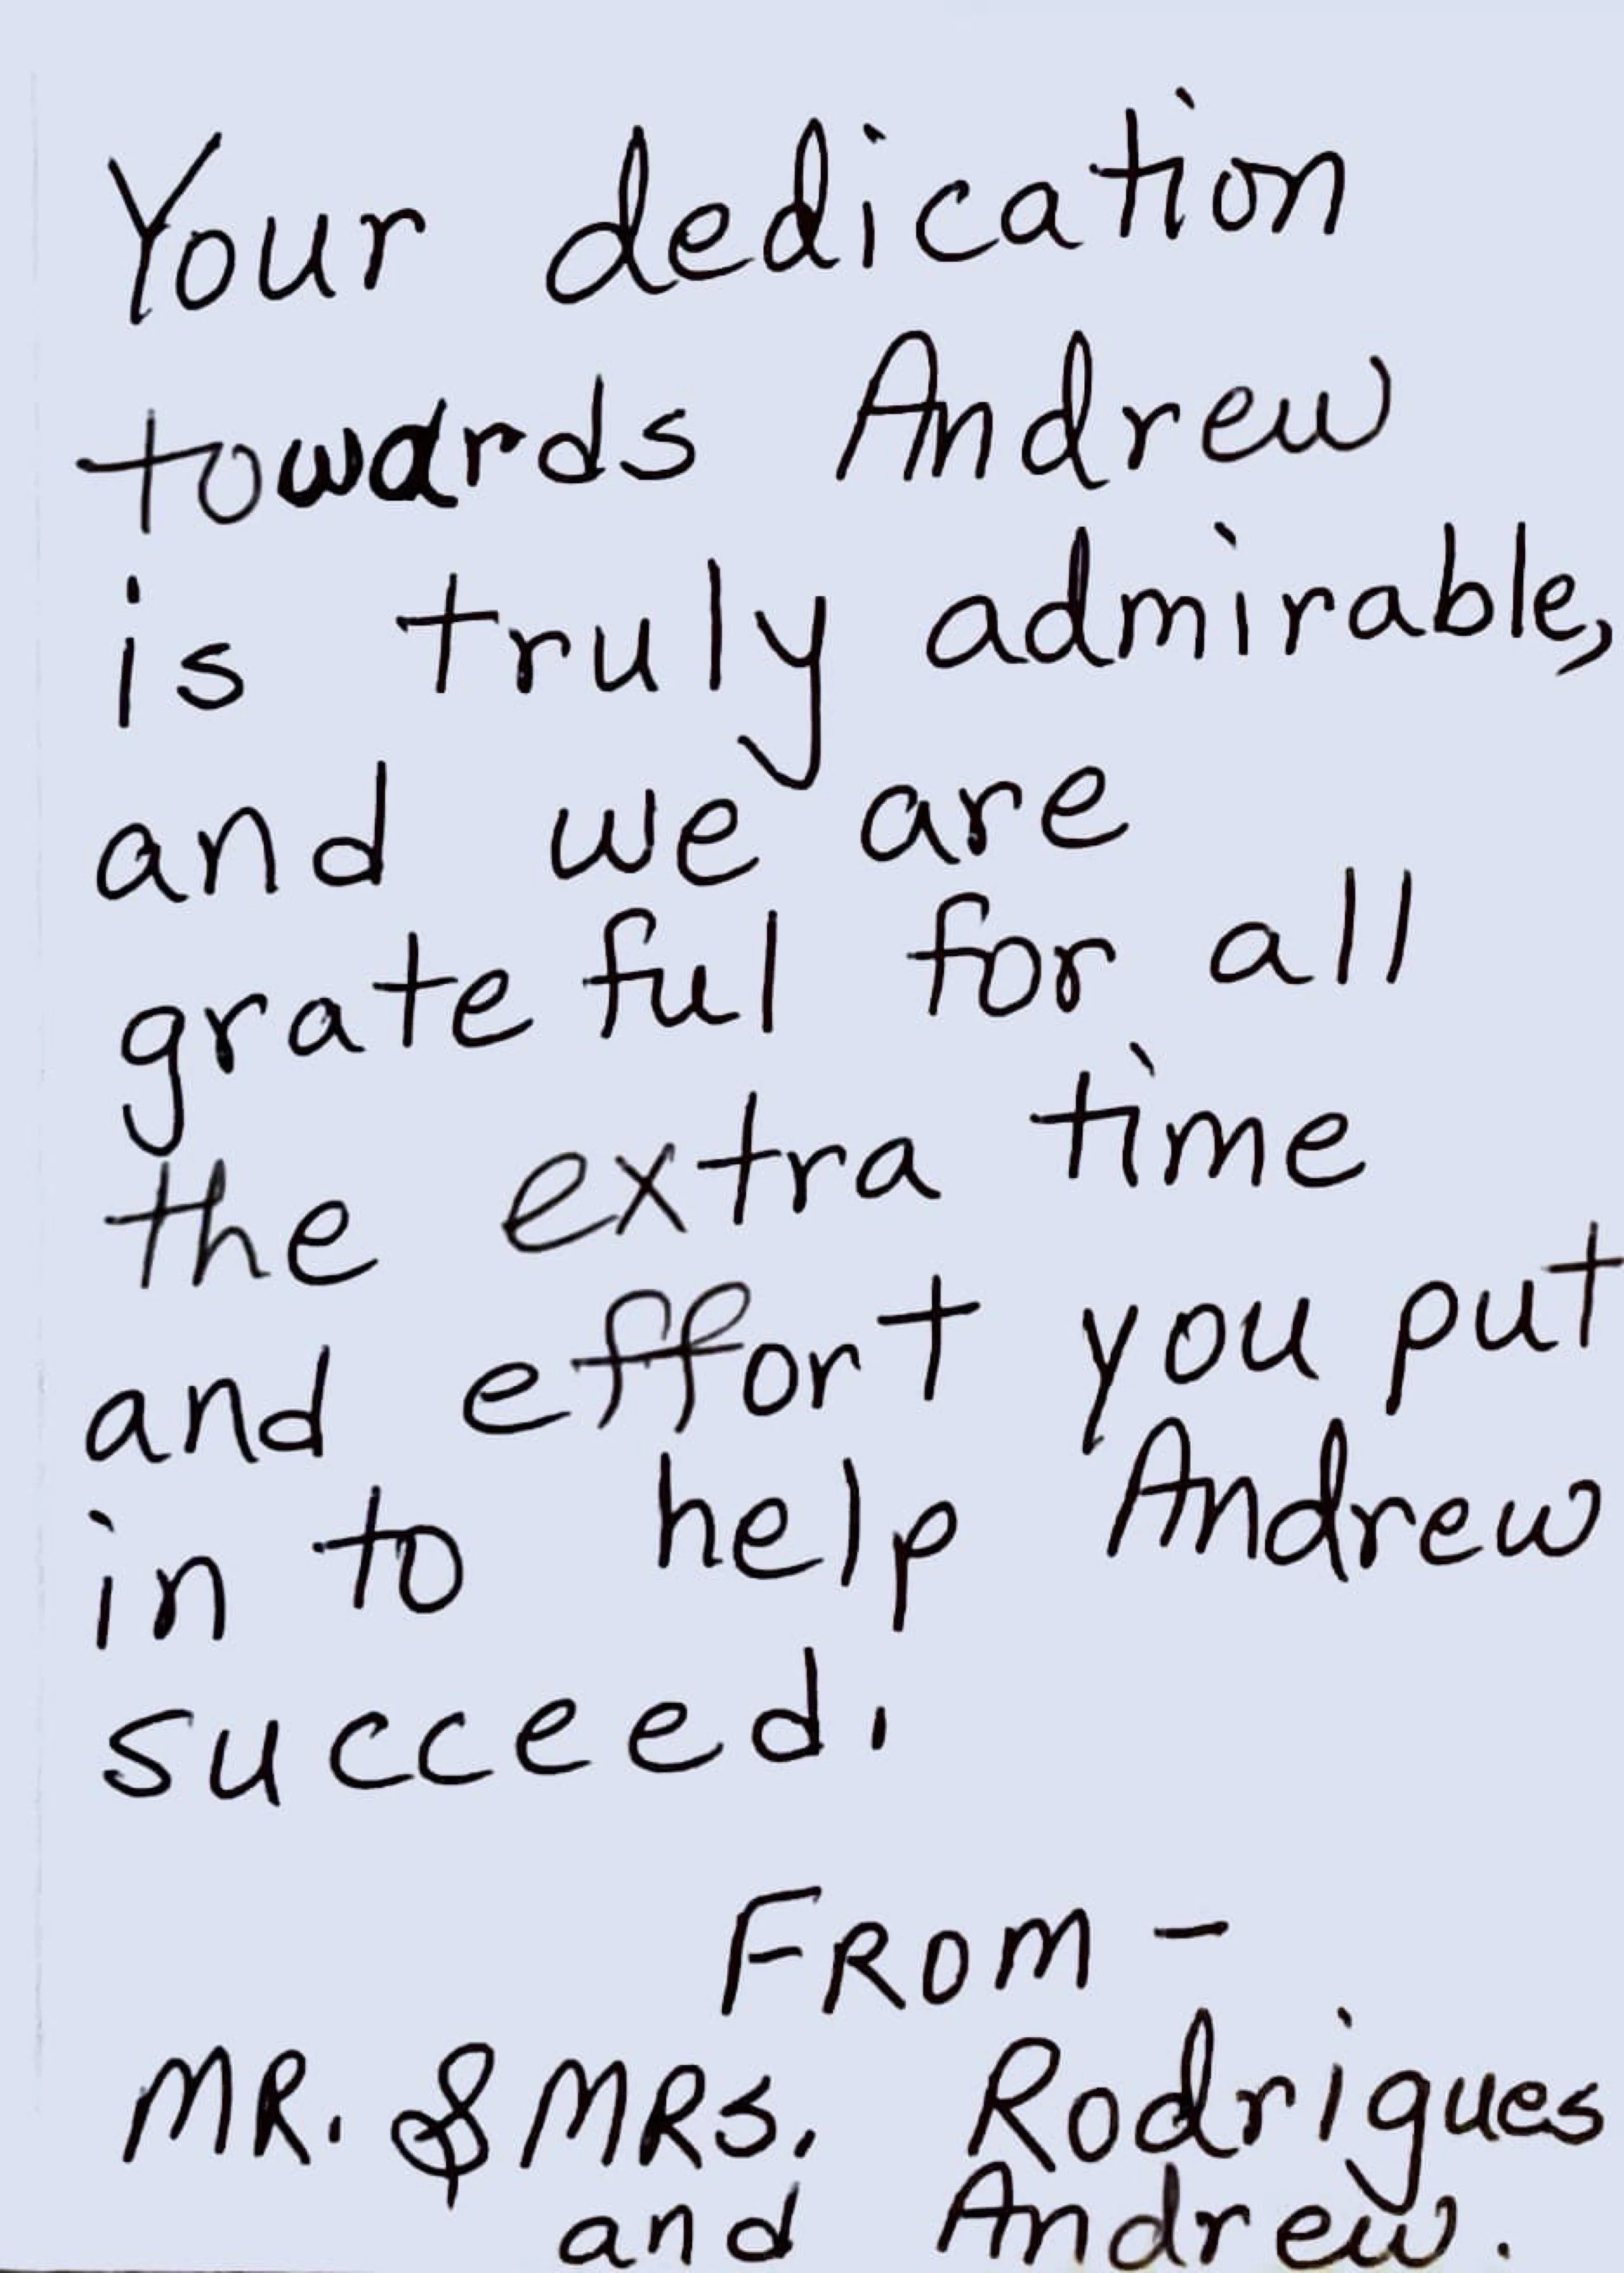 Your dedication
towards Andrew
is truly admirable,
and we are
grateful for all
the extra time
and effort you put
in to help Andrew
succeed.
FROM -
MR. & MRS. Rodrigues
and Andrew.